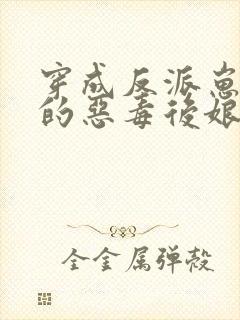 穿成反派崽
的恶毒後娘
全金属弹殼